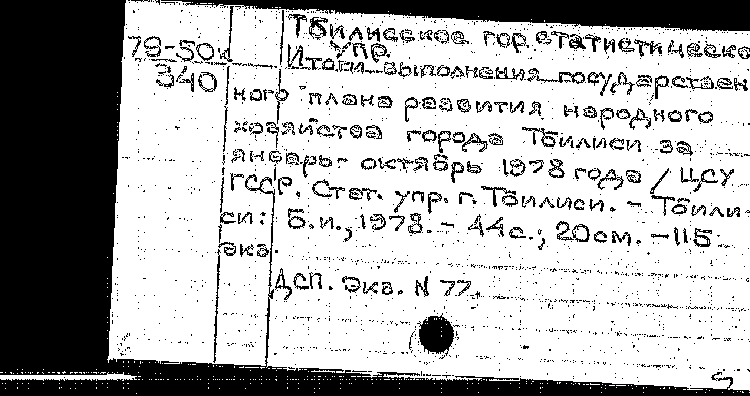 Тбилисское гор. статистическо
упр.
79-50к
340
Итоги выполнения государствен
ного плана развития народного
хозяйства города Тбилиси за
январь-октябрь 1978 года / ЦСУ
ГССР. Стат. упр. г. Тбилиси. - Тбили-
си: Б.и., 1978. - 44с.; 20см. - 115
экз.
ДСП. Экз. N 77.